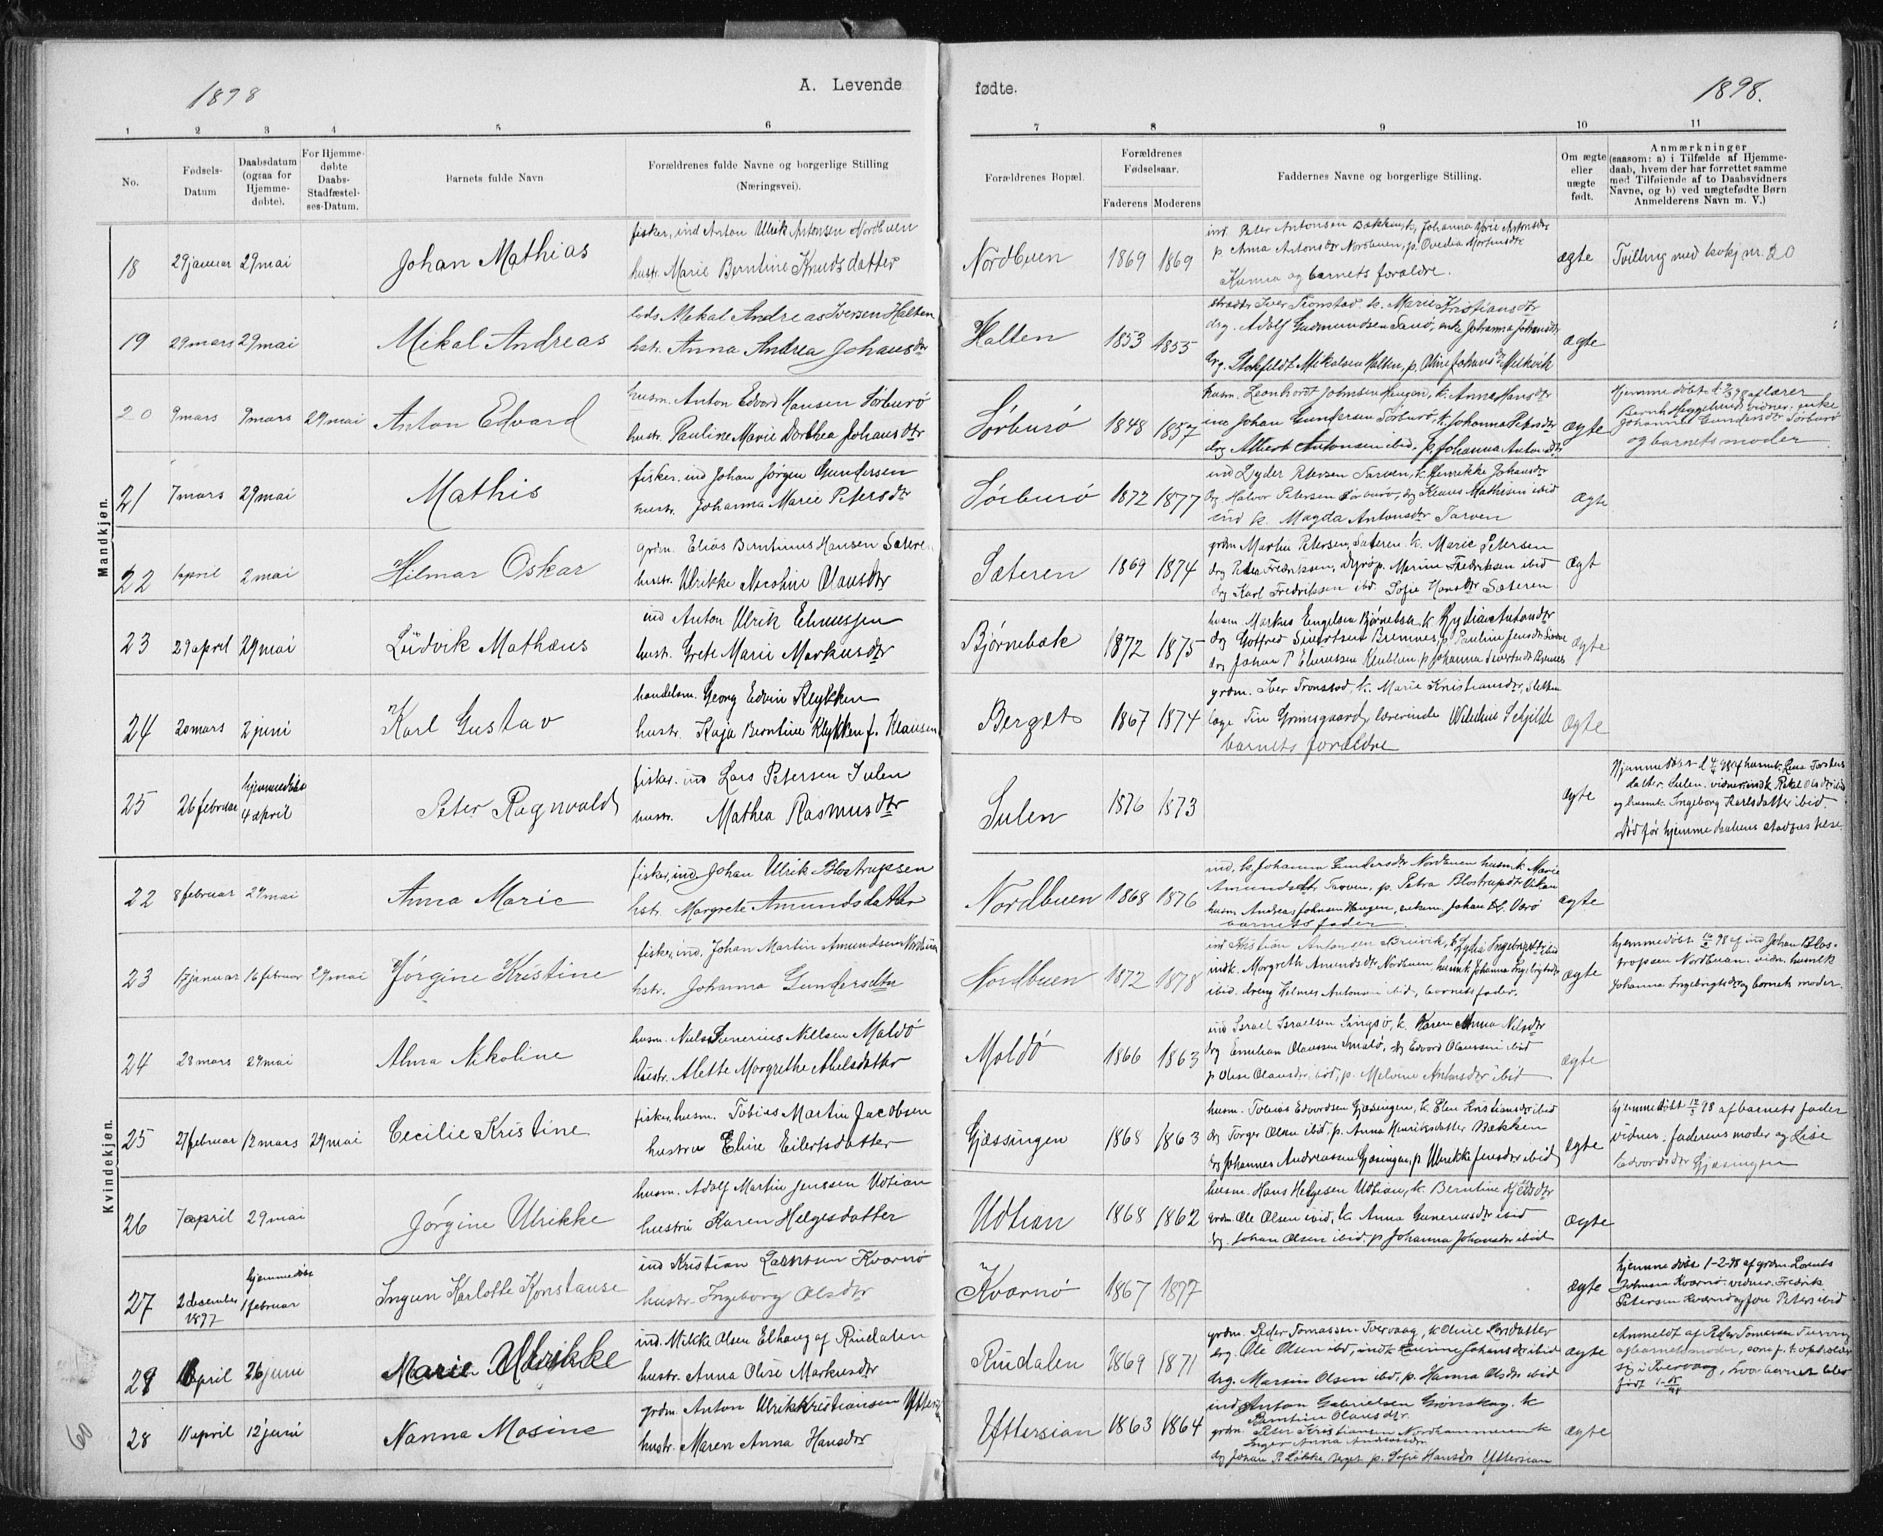 1898
A. Levende
fødte.
1898.
1 2 3 4 5 6 7 8 9 10 11
No.
Fødsels-Datum
Daabsdatum (ogsaa for Hjemme-døbte).
For Hjemme-døbte Daabs-Stadfæstel-ses-Datum.
Barnets fulde Navn
Forældrenes fulde Navne og borgerlige Stilling (Næringsvei).
Forældrenes Bopæl.
Forældrenes Fødselsaar.
Faderens Moderens
Faddernes Navne og borgerlige Stilling.
Om ægte eller uægte født.
Anmærkninger
(saasom: a) i Tilfælde af Hjemme-
daab, hvem der har forrettet samme
med Tilføiende af to Daabsvidners
Navne, og b) ved uægtefødte Børn
Anmelderens Navn m. V.)
Mandkjøn.
18 29 januar 29 mai Johan Mathias
fisker, ind Anton Ulrik Antonsen Nordbuen
hustr. Marie Berntine Knudsdatter
Nordbuen 1869 1869
ind Peter Antonsen Bakken, k. Johanna Marie Antonsdtr
p Anna Antonsdtr Nordbuen, p. Ovedia Mortensdtr
og barnets forældre.
ægte Tvilling med nr. 20
19 29 mars 29 mai Mikal Andreas
lods Mikal Andreas Iversen Halten
hstr. Anna Andrea Johansdtr
Halten 1853 1855
Iver Tronstad, k. Marie Kristiansdtr
drg. Adolf Gudmundsen Sanø, enke Johanna Johansdtr
drg. Mikalsen Halten, p. Oline Johansdtr Melkvik
ægte
20 9 mars 9 mars 29 mai Anton Edvard
husm. Anton Edvard Hansen Sørburø
hustr. Pauline Marie Dorthea Johansdtr
Sørburø 1848 1857
husm. Leonhardt Johnsen Haugen, k. Anna Hansdtr
ind Johan Gundersen Sørburø, k. Johanna Petersdtr
drg Albert Antonsen ibid. p. Johanna Antonsdtr
ægte
Hjemmedøbt af lærer
vidner, enke
Johanna Gundersdtr Sørburø
og barnets moder
21 7 mars 29 mai Mathis
fisker. ind Johan Jørgen Gundersen
hustr. Johanna Marie Petersdtr
Sørburø 1872 1877
ind Lyder Petersen Tarven, k. Henrikke Johansdtr
dg Halvor Petersen Sørburø, dg Klaus Mathisen ibid
ind k. Magda Antonsdtr Tarven
ægte
22 1 april 2 mai Hilmar Oskar
grdm. Elias Berntinus Hansen Sætere
hustr. Ulrikke Nicoline Olausdtr
Sæteren 1869 1874
grdm Martin Petersen, Sæteren, k. Marie Petersen
drg Peder Fredriksen, p. Marine Fredriksen ibid
drg Karl Fredriksen ibid Sofie Hansdtr Sæteren
ægt
23 29 april 29 mai Ludvik Mathæus
ind Anton Ulrik Elmussen
hustr. Grete Marie Markusdtr
Bjørnebæk 1872 1875
husm Markus Engelsen Bjørnebæk k. Lydia Antondtr
dg Gotfred Seiertsen Bremnes, p. Pauline Jensdtr
drg Johan P. Elmussen p Johanna
ægte
24 20 mars 2 juni Karl Gustav
handelsm. Georg Edvin Klykken
hustr. Kaja Berntine Klykken f. Klausen
Berget 1867 1874
grdm. Iver Tronstad, k. Marie Kristiansdtr,
læge Grimsgaard, lærerinde Schjilde
barnets forældre
ægte
25 26 februar hjemmedøbt 4 april Peter Ragnvald
fisker. ind Lars Petersen Sulen
hustr. Mathea Rasmusdtr
Sulen 1876 1873
ægte
Hjemmedøbt af husmk. Lena
datter, Sulen, vidner: indk. ibid
og husmk. Ingeborg Karlsdatter ibid.
død før hjemmedaabens stadfæstelse
Kvindekjøn.
22 8 februar 29 mai Anna Marie
fisker, ind Johan Ulrik Blostrupsen
hstr. Margrete Amundsdatter
Nordbuen 1868 1876
ind, k. Johanna Gundersdtr Nordbuen husm. k. Marie
Amundsdtr Tarven, p. Petra Blostrupdtr Vikan
husm. Andreas Johnsen Haugen, Johan Værø
barnets fader.
ægte
23 17 januar 16 februar 29 mai Jørgine Kristine
fisker, ind. Johan Martin Amundsen Nordbuen
hstr. Johanna Gundersdtr
Nordbuen 1872 1878
ind Kristian Antonsen Breivik, k. Lydia Ingebrigtdtr ibid
indk. Margreth Amundsdtr Nordbuen husmk. Johanna Ingebrigtsdtr
ibid. dreng Helmer Antonsen ibid, barnets fader.
ægte
hjemmedøbt 16/2 98 af ind Johan Blos-
trupsen Nordbuen. vidn. husmk
Johanna Ingebrigtsdtr og barnets moder.
24 23 mars 29 mai Alma Nikoline
husm. Niels Nielsen Maldø
hustr. Alette Margrethe Abelsdatter
Maldø 1866 1863
ind Israel Israelsen Singsø, k. Karen Anna Nilsdtr
drg Emilian Olaussen Smalø, dg Edvard Olaussen ibid
p Oline Olausdtr ibid, p. Melvine Antonsdtr ibid
ægte
25 27 februar 12 mars 29 mai Cecilie Kristine
fisker, husm. Tobias Martin Jacobsen
hustru Eline Eilertsdatter
Gjæssingen 1868 1863
husm. Tobias Edvardsen Gjæsingen, k. Elen Kristiansdtr ibid
dg Torger Olsen ibid. p. Anna Henriksdatter Bakken
drg Johannes Andreassen Gjæsingen, p. Ulrikke Jensdtr ibid
ægte
hjemmedøbt 12/3 98 af barnets fader
vidner. faderens moder og Lise
Edvardsdtr Gjæsingen
26 7 april 29 mai Jørgine Ulrikke
husm. Adolf Martin Jenssen Udtian
hustru Karen Helgesdatter
Udtian 1868 1862
husm. Hans Helgesen Udtian, k. Berntine Kjeldsdtr
grdm. Ole Olsen ibid, k. Anna Gunerusdtr ibid
dg. Johan Olsen ibid. p Johanna Johansdtr ibid
ægte
27 2 desember 1897 hjemmedøbt 1 februar Ingun Karlotte Konstanse
ind Kristian Larentsen Kvarnø
hustr. Ingeborg Olsdtr
Kvarnø 1867 1877
ægte
hjemmedøbt 1-2-98 af grdm. Lorents
Johnsen Kvarnø. vidner. Fredrik
Petersen Kvarnø og Peters ibid
28 april 26 juni Marie Ulrikke
ind. Mikke Olsen Elhaug af Rindalen
hustr. Anna Oline Markusdtr
Rindalen 1869 1871
grdm. Peder Tomassen Tvervaag, k. Oline Larsdatter
drg. Ole Olsen ibid, indk Johansdtr ibid
drg. Martin Olsen ibid, p. Hanna Olsdtr ibid
ægte
Anmeldt af Peder Tomassen Tvervaag
og barnets moder, som p. t. opholder
sig i Tvervaag, hvor barnet blev
født
28 11 april 12 juni Nanna Mosine
grdm. Anton Ulrik Kristiansen Yttersian
hustr. Maren Anna Hansdtr
Yttersian 1863 1864
ind Anton Gabrielsen Grønskag, k
Berntine Olausdtr
grdm. Peter Kristiansen Nordhammeren k
Inger Anna Andersdtr
dg Johan P. Løkke, Berget p. Sofie Hansdtr Yttersian
ægte
60